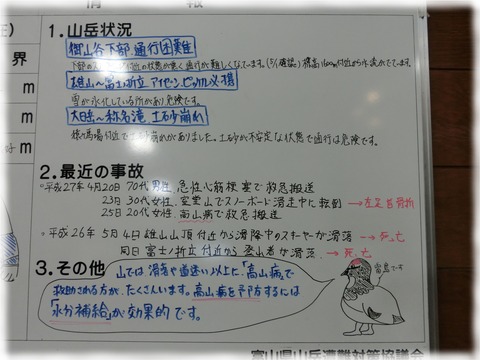 情　報
界
m
m
m
1.山岳状況
御山谷下部 通行困難
雄山～富士ノ折立 アイゼン、ピッケル必携
雪が氷化している所があり危険です。
大日岳～称名滝 土石砂崩れ
付近で土砂崩れがありました。土砂が不安定な状態で通行は危険です。
2.最近の事故
○平成27年 4月20日 70代男性 急性心筋梗塞で救急搬送
23日 30代女性、室堂山でスノーボード滑走中に転倒 →左足首骨折
25日 20代女性 高山病で救急搬送
○平成26年 5月4日 雄山山頂付近から滑降中のスキーヤーが滑落 →死亡
同日 富士ノ折立付近から登山者が滑落 →死亡
3.その他
山では滑落や道迷い以上に、「高山病」で
救助される方が、たくさんいます。高山病を予防するには
「水分補給」が効果的です。
雷鳥です
富山県山岳遭難対策協議会